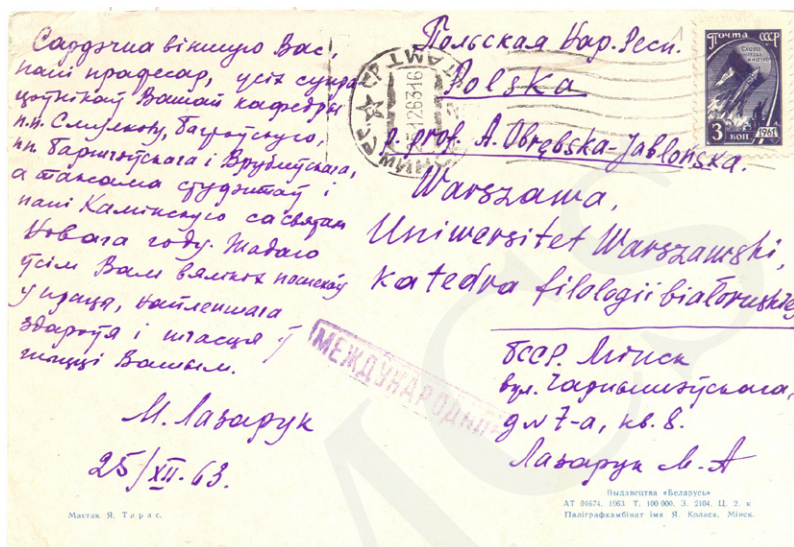 Сардэчна віншую Вас,
пані прафесар, усіх супра
цоўнікаў Вашай кафедры
п.п. Смулкову, Баброўскую,
пп. Баршчэўскага і Врублеўскага,
а таксама студэнтаў і
пані Камінскую са святам
Новага году. Жадаю
ўсім Вам вялікіх поспехаў
у працы, найлепшага
здароўя і шчасця ў
жыцці Вашым.
М. Лазарук
25/XII-63.
Польская Нар. Респ.
Polska
p. prof. A. Obrębska-Jabłońska.
Warszawa,
Uniwersitet Warszawski,
Katedra filologii białoruskiej
БССР. Мінск
вул. Чарнышэўскага,
д № 7-а, кв. 8.
Лазарук М. А
Почта СССР
3 коп
1961
МЕЖДУНАРОДНОЕ
Мастак Я. Тарас.
Выдавецтва «Беларусь»
АТ 01674. 1963. Т. 100 000. З. 2104. Ц. 2. к
Паліграфкамбінат імя Я. Коласа, Мінск.